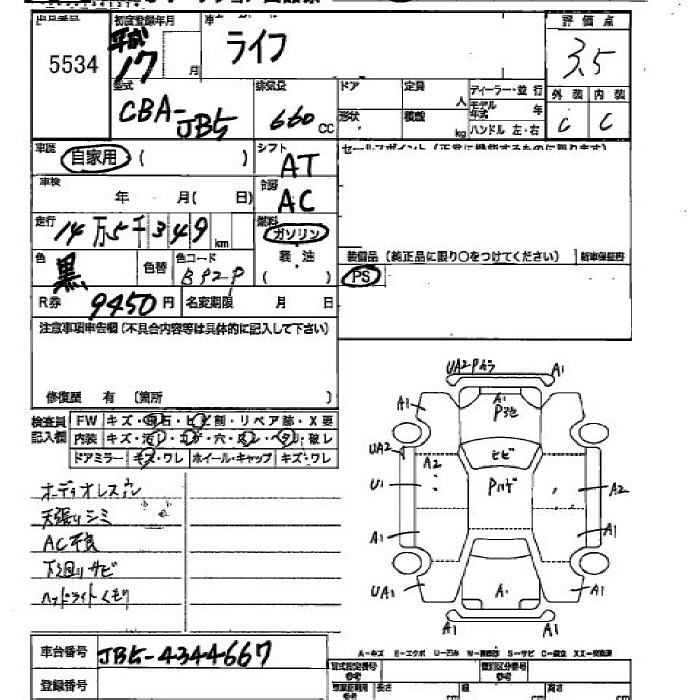 初度登録年月
評価点
5534
平成
17
月
ライフ
3.5
型式
排気量
ドア
定員
人
ディーラー・並行
外装
内装
モデル年式
年
CBA-JB5
660 CC
形状
積載
kg
ハンドル 左・右
C
C
車歴
自家用
(
)
シフト
AT
セールスポイント (正常に機能するものに限ります)
車検
年
月(
日)
AC
走行
14万5千349km
燃料
ガソリン
色
黒
色替
色コード
B92P
軽油
(
)
装備品 (純正品に限り○をつけてください)
新車保証書
PS
R券
9450円
名変期限
月
日
注意事項申告欄(不具合内容等は具体的に記入して下さい)
修復歴 有 〔箇所
〕
検査員記入欄
FW
キズ・飛石・ヒビ割・リペア跡・X要
内装
キズ・汚レ・コゲ・穴・破レ
ドアミラー
キズ・ワレ
ホイール・キャップ
キズ・ワレ
オーディオレス
天張りシミ
AC不良
下回りサビ
ヘッドライトくもり
UA2
A1
A1
A1
A1
ヒビ
UA2
A2
U1
Pハゲ
A2
A1
A1
UA1
A1
A1
A1
A-キズ E-エクボ U-凹み S-サビ C-腐蝕 XX-交換済
車台番号
JB5-4344667
登録番号
型式指定番号
参考
類別区分番号
参考
長さ
cm
幅
cm
高さ
cm